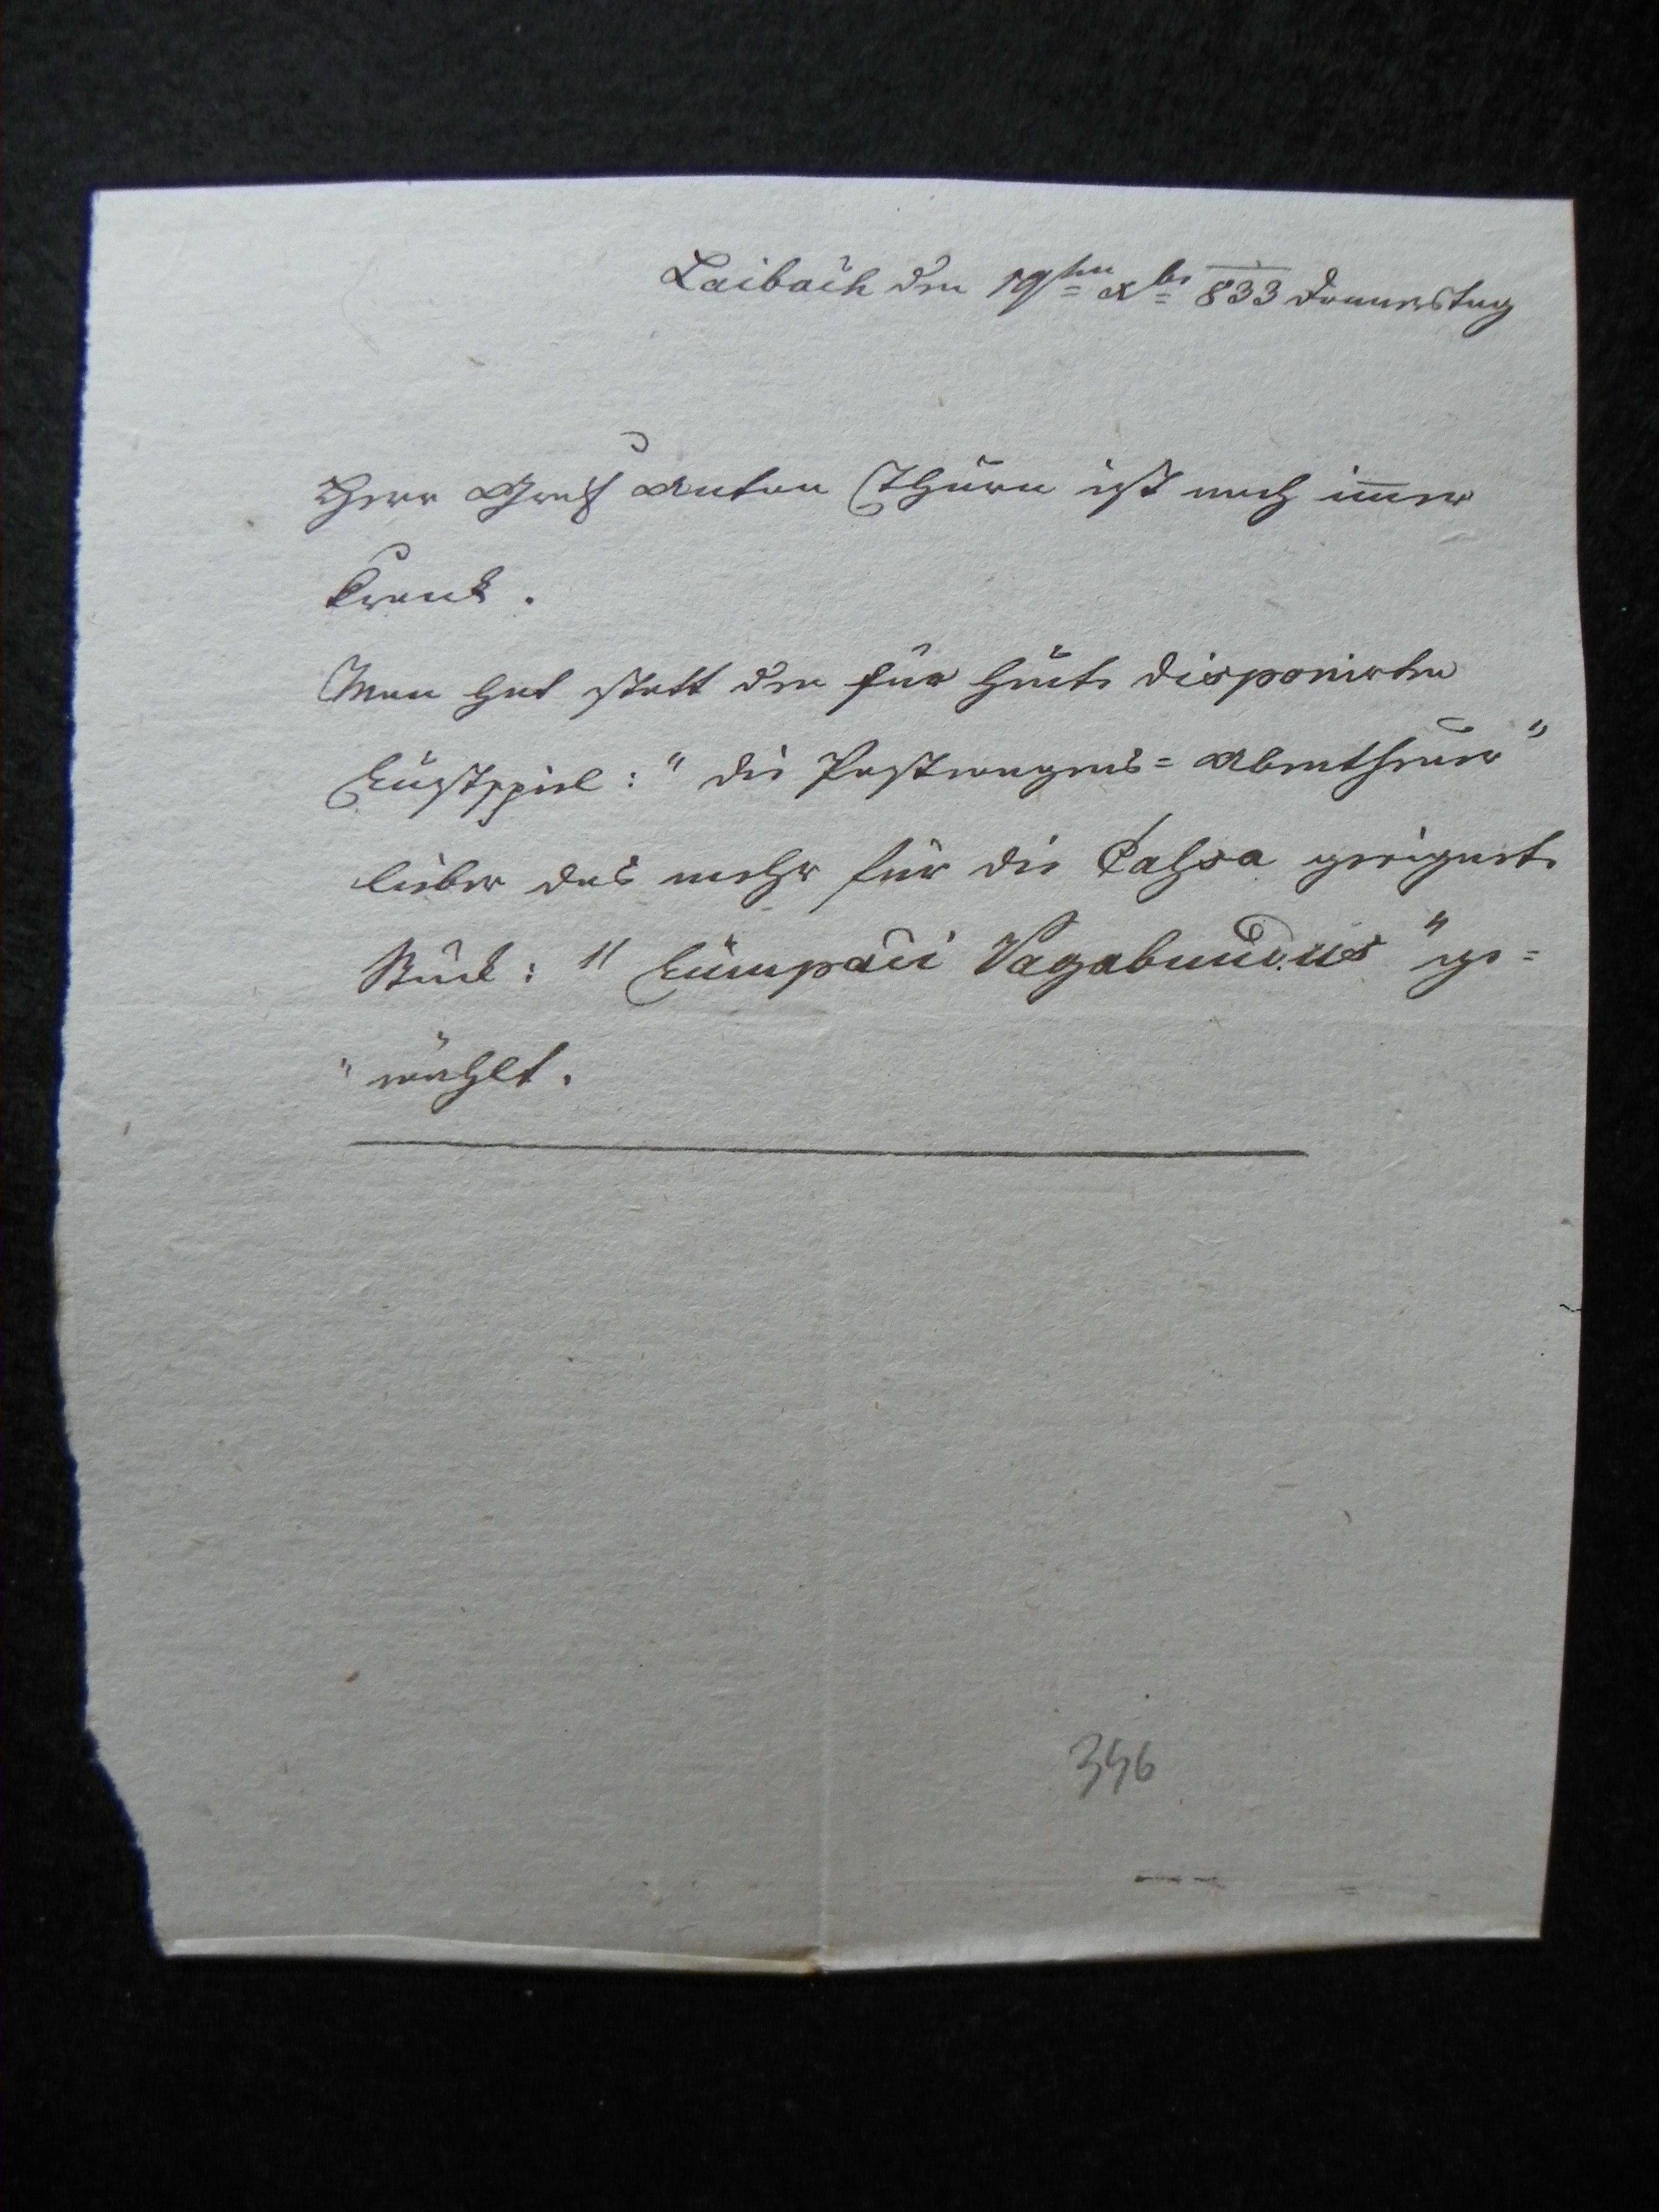 Laibach den 19ten Xbr 833 Donnerstag
Herr Graf Anton Thurn ist noch im̅er
krank.
Man hat statt den für heute disponirten
Lustspiel: "die Postwagens=Abentheuer"
lieber das mehr für die Cahsa geeignete
Stück: "Lumpaci Vagabundus" ge=
"wählt.
346